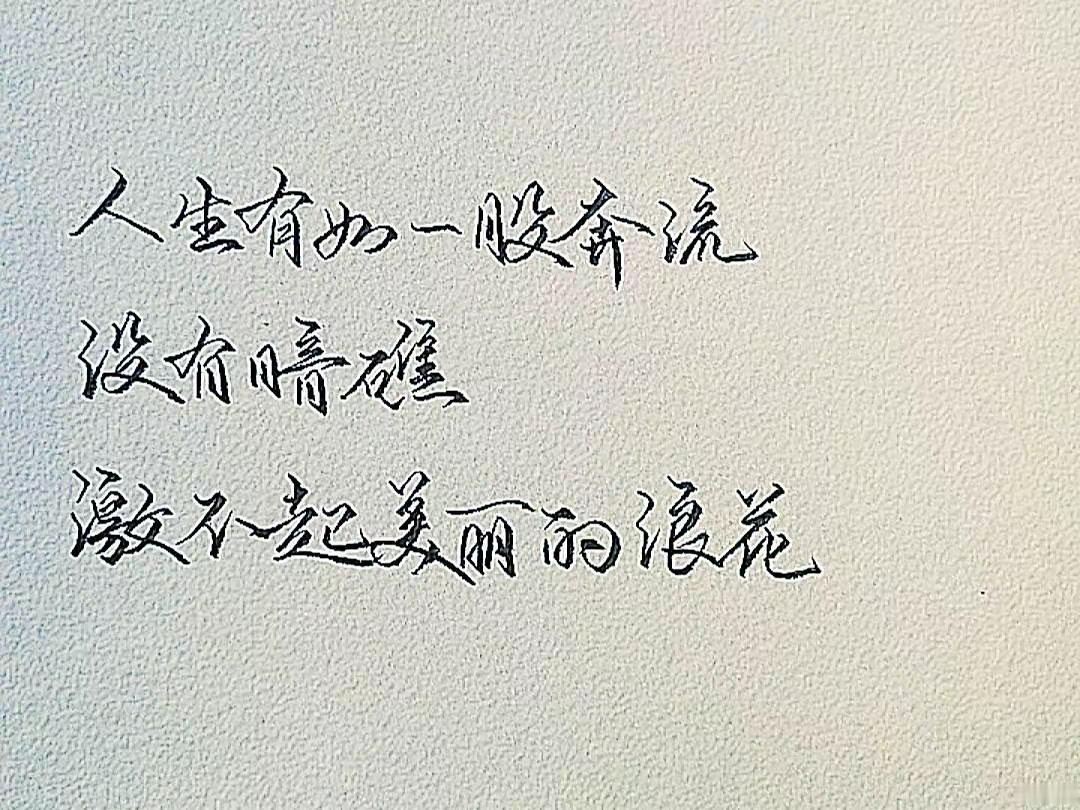 人生有如一股奔流
没有暗礁
激不起美丽的浪花